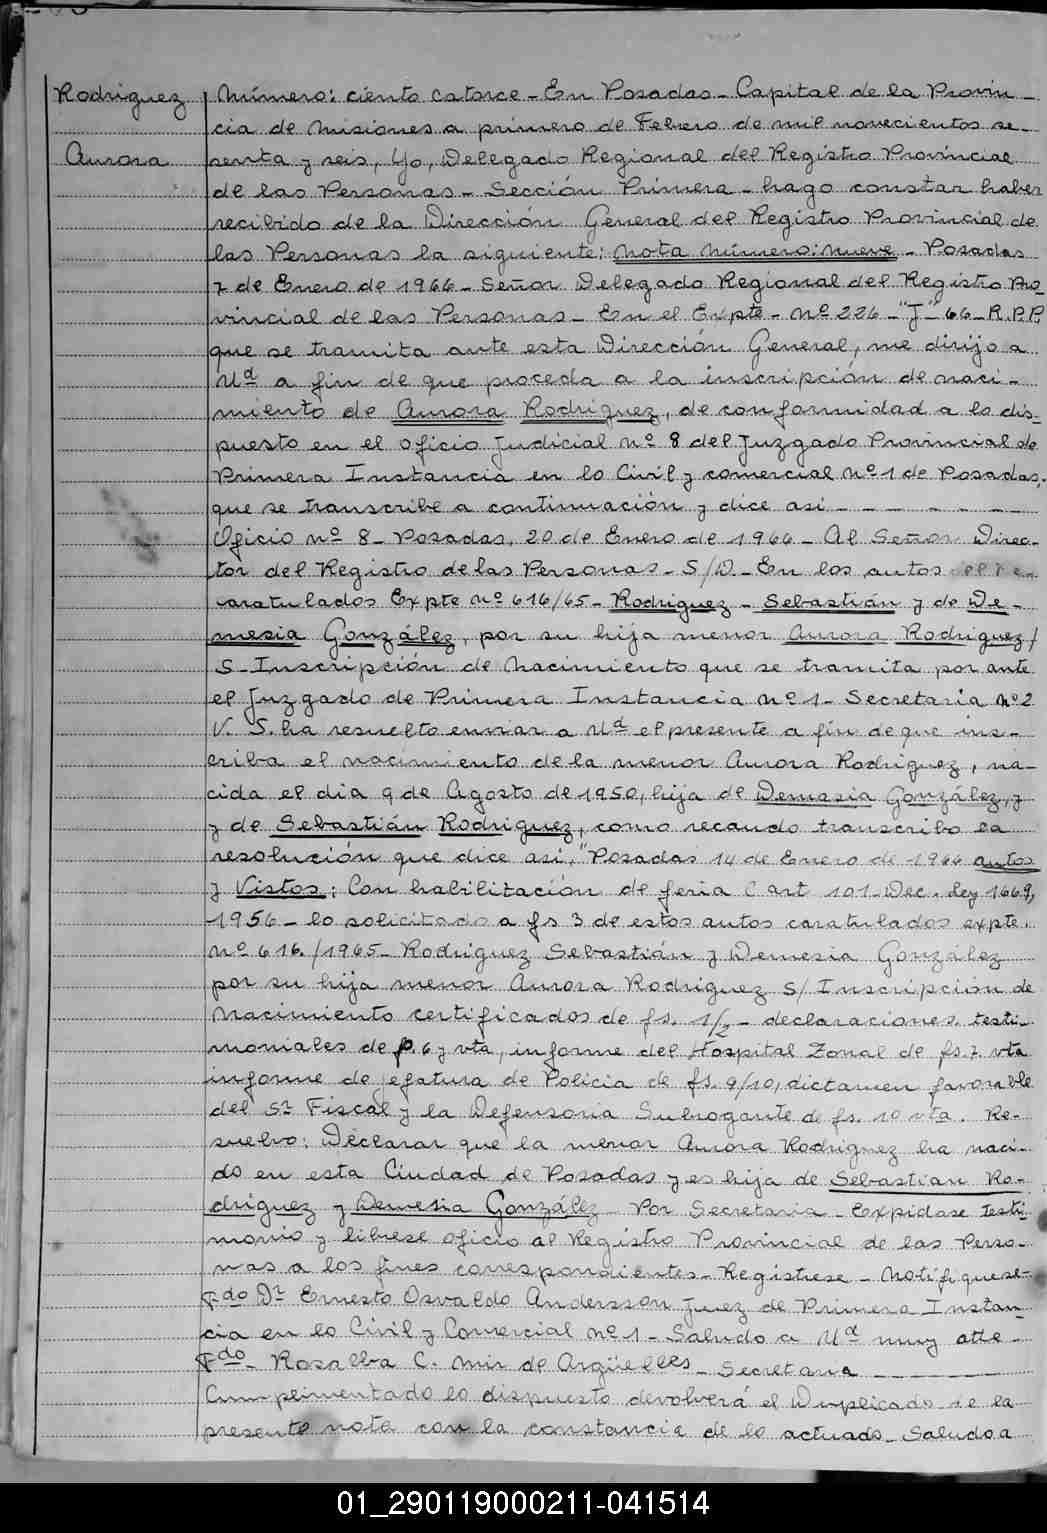 Rodriguez
Aurora
Número: ciento catorce - En Posadas - Capital de la Provin-
cia de Misiones a primero de Febrero de mil novecientos se-
senta y seis, Yo, Delegado Regional del Registro Provincial
de las Personas - Sección Primera - hago constar haber
recibido de la Dirección General del Registro Provincial de
las Personas la siguiente: nota número: nueve - Posadas
7 de Enero de 1966 - Señor Delegado Regional del Registro Pro-
vincial de las Personas - En el Expte - nº 226 - "J" - 66 - R.P.P.
que se tramita ante esta Dirección General, me dirijo a
Ud a fin de que proceda a la inscripción de naci-
miento de Aurora Rodriguez, de conformidad a lo dis-
puesto en el oficio judicial nº 8 del Juzgado Provincial de
Primera Instancia en lo Civil y comercial nº 1 de Posadas,
que se transcribe a continuación y dice asi - - - - - - -
Oficio nº 8 - Posadas, 20 de Enero de 1966 - Al Señor Direc-
tor del Registro de las Personas - S/D. - En los autos
caratulados Expte nº 616/65 - Rodriguez - Sebastián y de De-
mesia González, por su hija menor Aurora Rodriguez /
S - Inscripción de nacimiento que se tramita por ante
el Juzgado de Primera Instancia nº 1 - Secretaria nº 2
V. S. ha resuelto enviar a Ud el presente a fin de que ins-
criba el nacimiento de la menor Aurora Rodriguez, na-
cida el dia 9 de Agosto de 1950, hija de Demesia González, y
y de Sebastián Rodriguez, como recaudo transcribo la
resolución que dice asi, "Posadas 14 de Enero de 1966 autos
y Vistos: Con habilitación de feria C art 101 - Dec. Ley 1669,
1956 - lo solicitado a fs 3 de estos autos caratulados expte.
nº 616./1965 - Rodriguez Sebastián y Demesia González
por su hija menor Aurora Rodriguez S/ Inscripción de
nacimiento certificados de fs. 1/2 - declaraciones testi-
moniales de p. 6 y vta, informe del Hospital Zonal de fs. 7. vta
informe de jefatura de Policia de fs. 9/10, dictamen favorable
del Sr Fiscal y la Defensoria Subrogante de fs. 10 vta. Re-
suelvo: Declarar que la menor Aurora Rodriguez ha naci-
do en esta Ciudad de Posadas y es hija de Sebastian Ro-
driguez y Demesia González - Por Secretaria - Expidase testi-
monio y librese oficio al Registro Provincial de las Perso-
nas a los fines correspondientes - Registrese - Notifiquese -
Fdo Dr Ernesto Osvaldo Andersson Juez de Primera Instan-
cia en lo Civil y Comercial nº 1 - Saludo a Ud muy atte -
Fdo - Rosalba C. Mir de Argüelles - Secretaria
Cumplimentado lo dispuesto devolverá el Duplicado de la
presente nota con la constancia de lo actuado - Saludo a
01_290119000211-041514